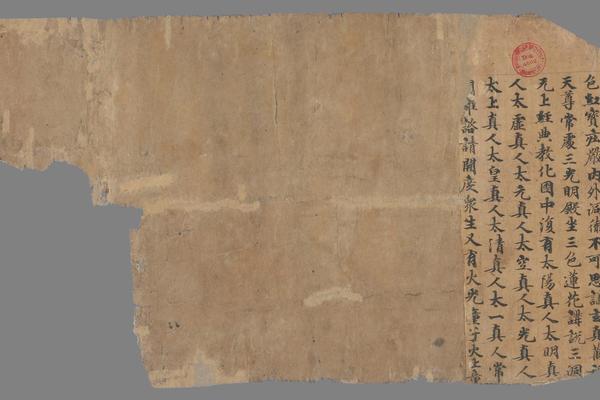 色虹寶庄嚴内外侍衛不可思議玄真萬
天尊常處三光明殿坐三色蓮花講說三洞
无上經典教化國中復有太陽真人太明真
人太虛真人太元真人太空真人太光真人
太上真人太皇真人太清真人太一真人常
諮請開度衆生又有火光童子火主帝